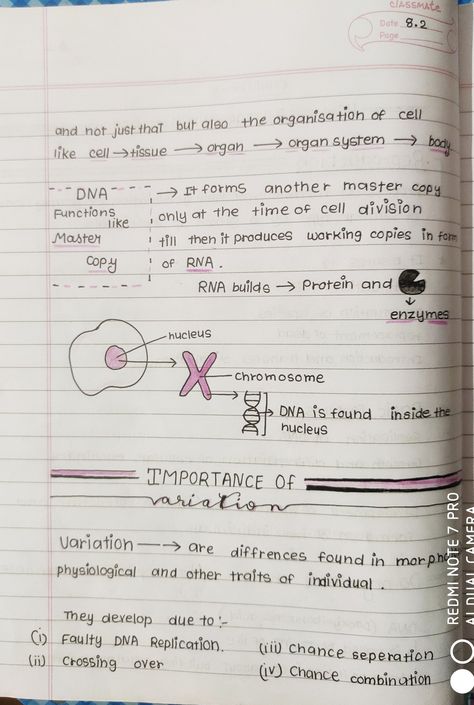 classmate
Date 8.2
Page
and not just that but also the organisation of cell
like cell → tissue → organ → organ system → body.
DNA → It forms another master copy
Functions like only at the time of cell division
Master till then it produces working copies in form
copy of RNA.
RNA builds → Protein and
enzymes
nucleus
chromosome
DNA is found inside the
nucleus
IMPORTANCE Of
variation
Variation → are diffrences found in
physiological and other traits of individual.
They develop due to :-
(i) Faulty DNA Replication. (iii) Chance seperation
(ii) Crossing over (iv) Chance combination
REDMI NOTE 7 PRO
AI DUAL CAMERA